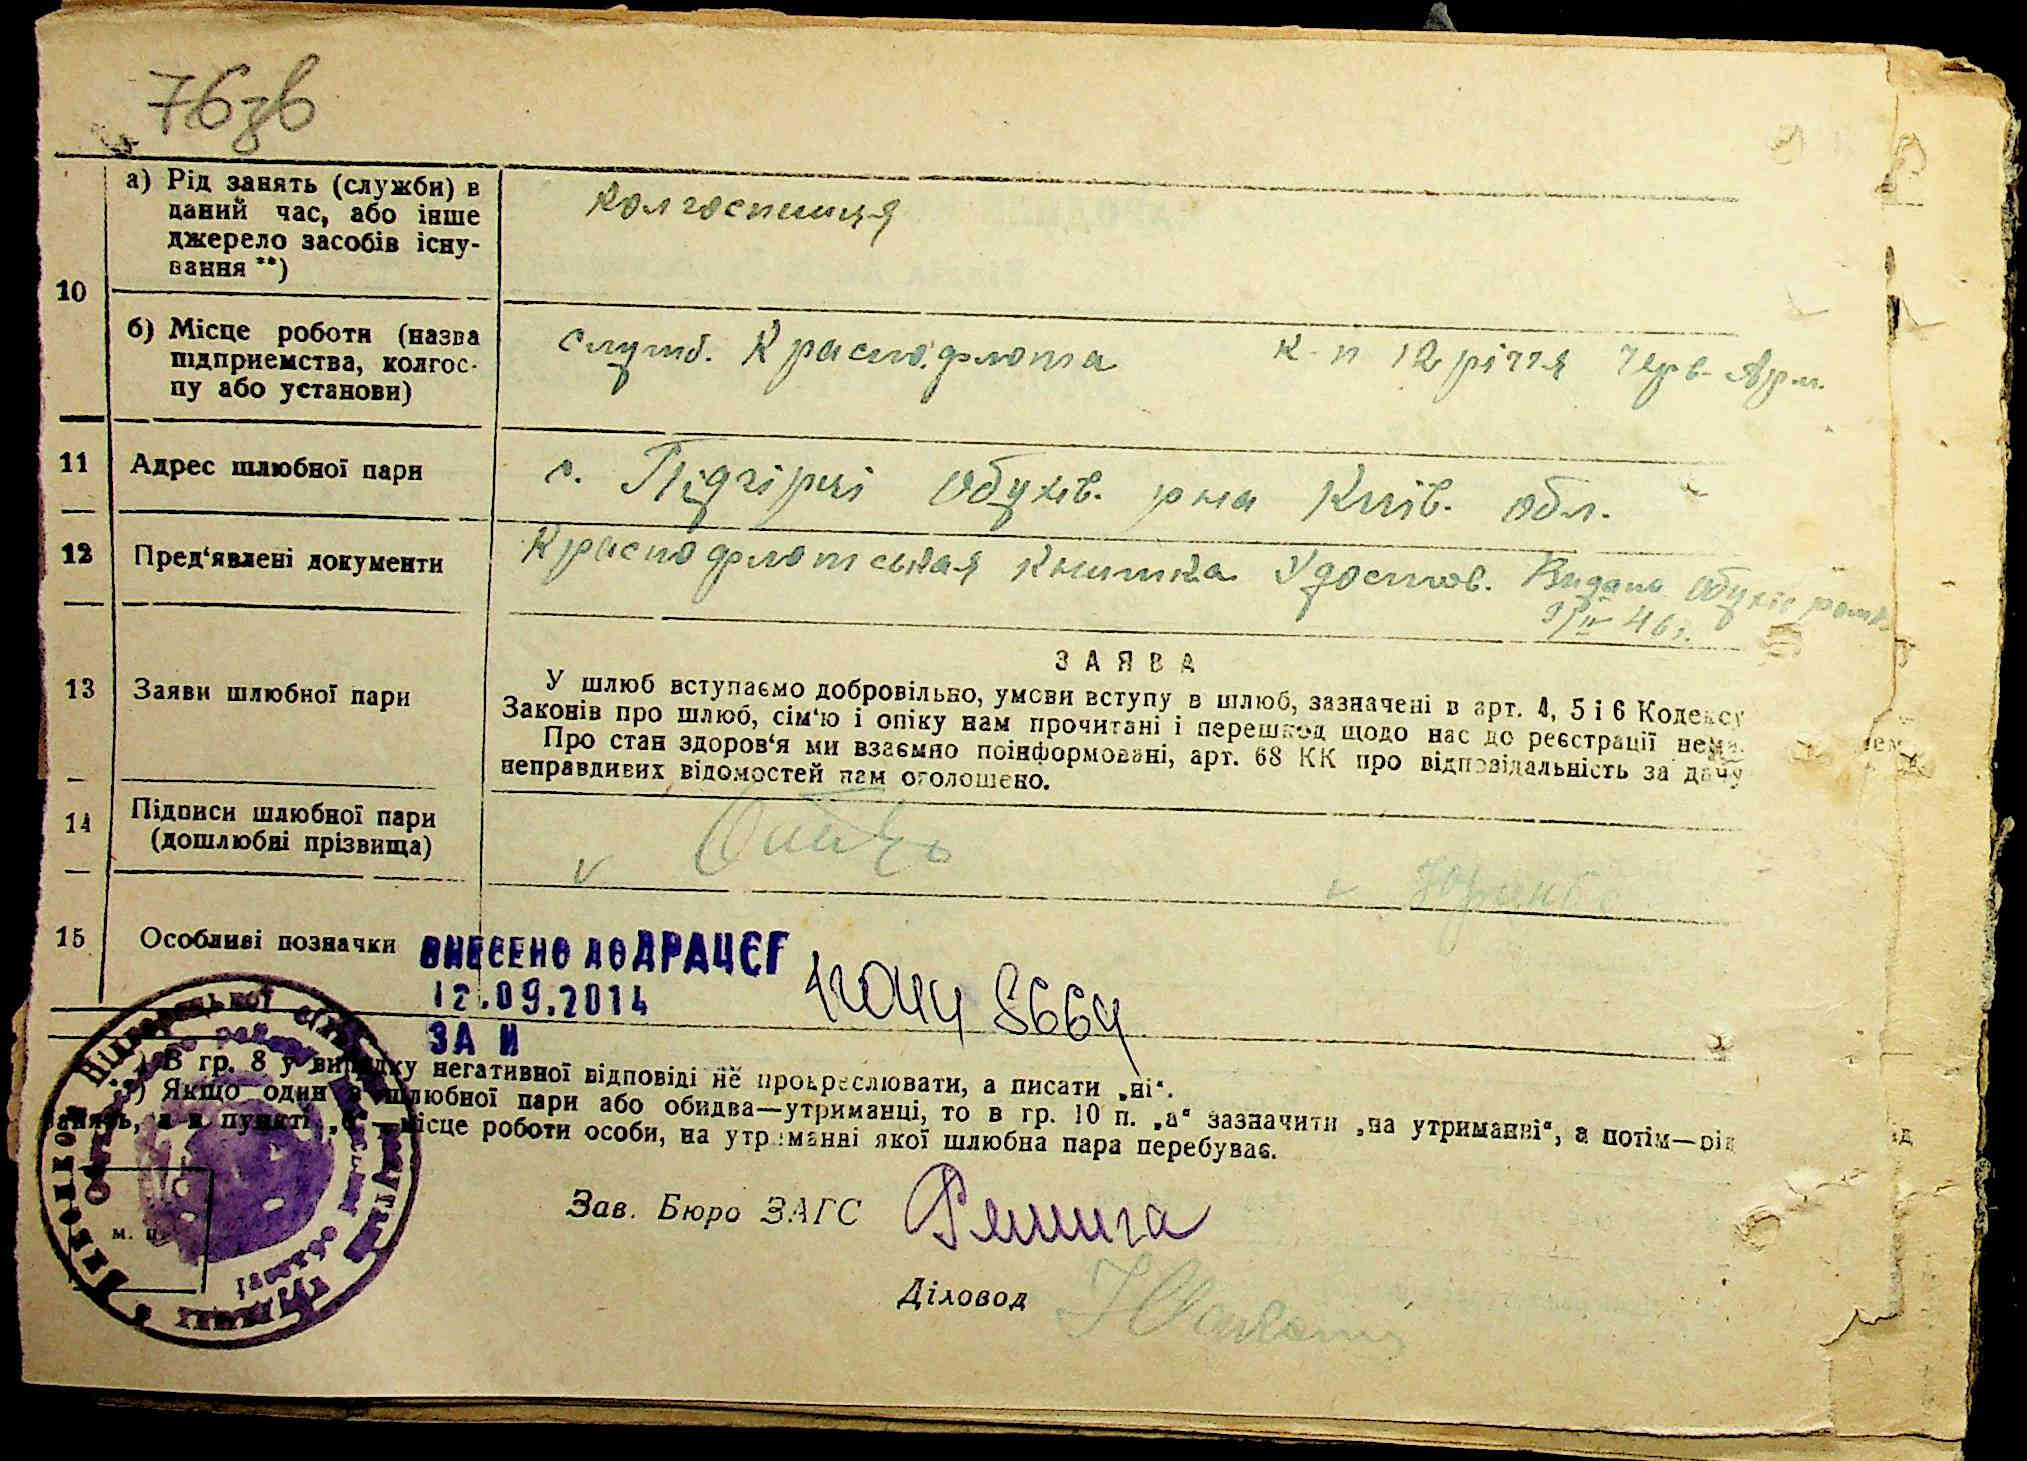 76зв
10
а) Рід занять (служби) в
даний час, або інше
джерело засобів існу-
вання **)
колгоспниця
б) Місце роботи (назва
підприємства, колгос-
пу або установи)
служб. Краснофлота к-п 12 річчя Черв. Арм.
11 Адрес шлюбної пари
с. Підгірці Обухів. р на Київ. обл.
12 Пред'явлені документи
Краснофлотськая книжка Удостов. Видано Обухів
46 г.
13 Заяви шлюбної пари
ЗАЯВА
У шлюб вступаємо добровільно, умови вступу в шлюб, зазначені в арт. 4, 5 і 6 Кодексу
Законів про шлюб, сім'ю і опіку нам прочитані і перешкод щодо нас до реєстрації нема.
Про стан здоров'я ми взаємно поінформовані, арт. 68 КК про відповідальність за дачу
неправдивих відомостей нам оголошено.
14 Підписи шлюбної пари
(дошлюбні прізвища)
v v
15 Особливі позначки
ВНЕСЕНО ДО ДРАЦСГ
12.09.2014
ЗА N
8664
*) В гр. 8 у випадку негативної відповіді не прокреслювати, а писати „ні“.
**) Якщо один з шлюбної пари або обидва—утриманці, то в гр. 10 п. „а“ зазначити „на утриманні“, а потім—рід
занять, а в пункті „б“—місце роботи особи, на утриманні якої шлюбна пара перебуває.
м. п.
Зав. Бюро ЗАГС
Діловод